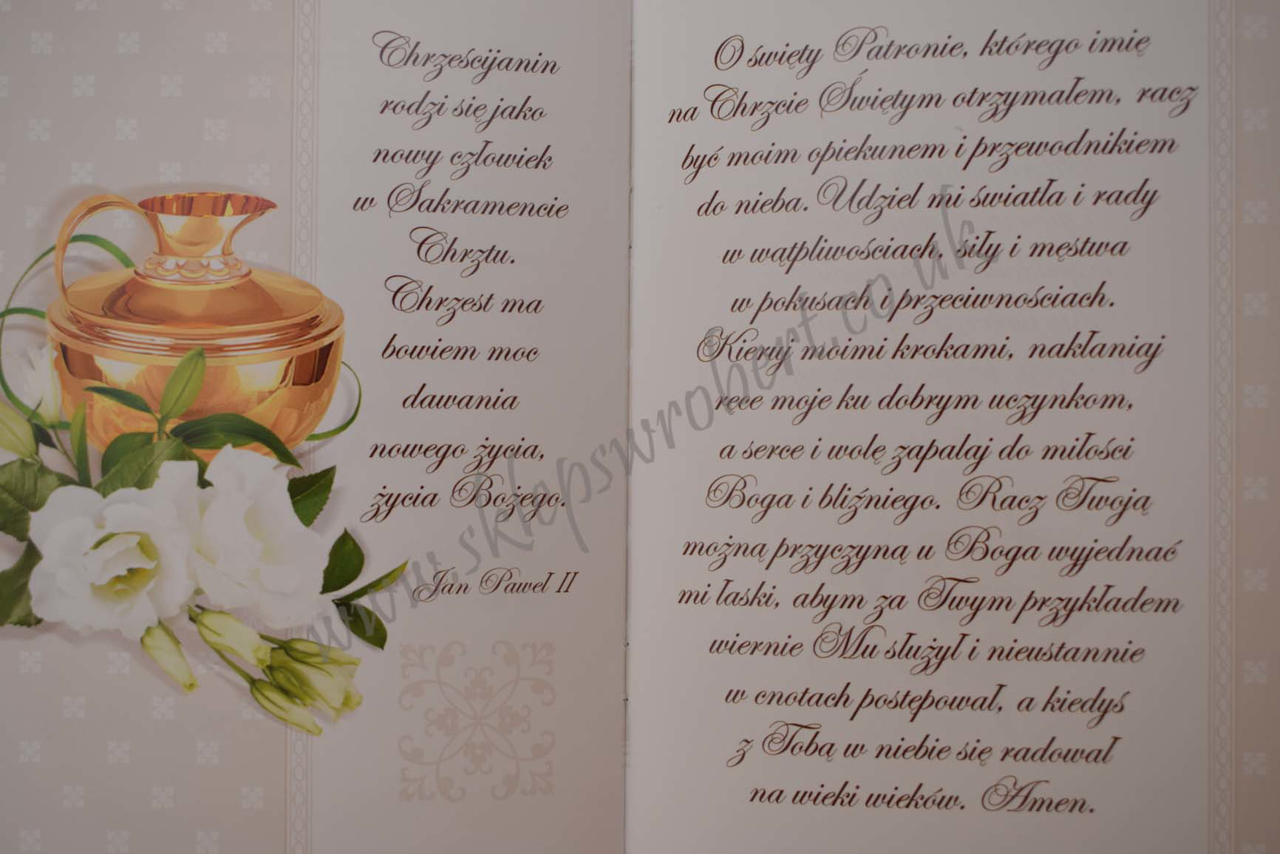 Chrześcijanin
rodzi się jako
nowy człowiek
w Sakramencie
Chrztu.
Chrzest ma
bowiem moc
dawania
nowego życia,
życia Bożego.
Jan Paweł II
O święty Patronie, którego imię
na Chrzcie Świętym otrzymałem, racz
być moim opiekunem i przewodnikiem
do nieba. Udziel mi światła i rady
w wątpliwościach, siły i męstwa
w pokusach i przeciwnościach.
Kieruj moimi krokami, nakłaniaj
ręce moje ku dobrym uczynkom,
a serce i wolę zapalaj do miłości
Boga i bliźniego. Racz Twoją
możną przyczyną u Boga wyjednać
mi łaski, abym za Twym przykładem
wiernie Mu służył i nieustannie
w cnotach postępował, a kiedyś
z Tobą w niebie się radował
na wieki wieków. Amen.
www.sklepswrobert.co.uk